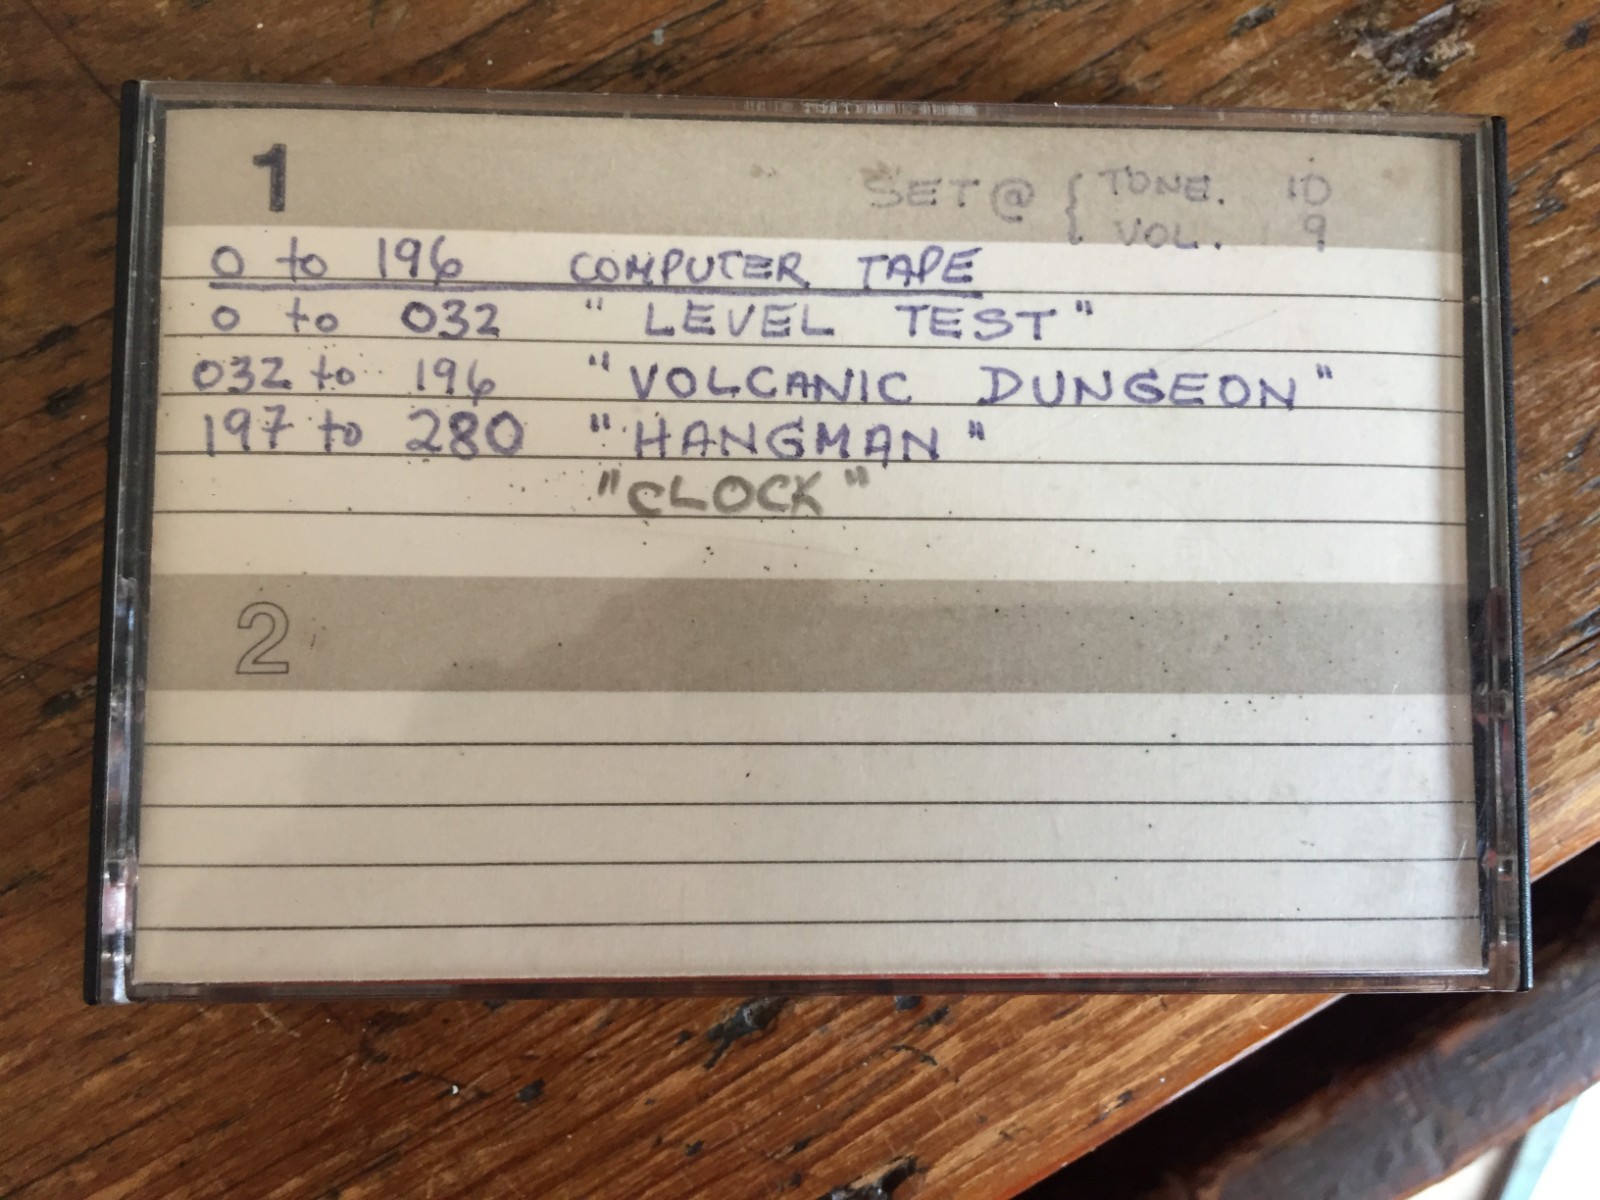 1
SET @ { TONE. 10
VOL. 9
0 to 196 COMPUTER TAPE
0 to 032 "LEVEL TEST"
032 to 196 "VOLCANIC DUNGEON"
197 to 280 "HANGMAN"
"CLOCK"
2